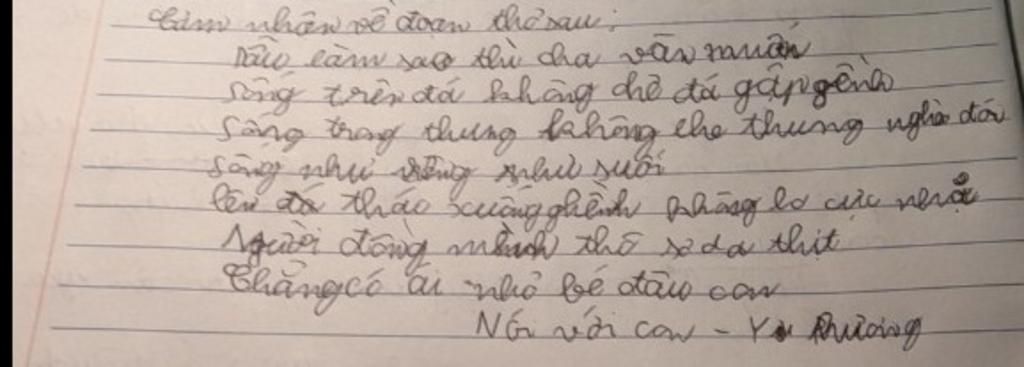 Cảm nhận về đoạn thơ sau:
Dẫu làm sao thì cha vẫn muốn
Sống trên đá không chê đá gập gềnh
Sống trong thung không chê thung nghèo đói
Sống như sông như suối
Lên thác xuống ghềnh không lo cực nhọc
Người đồng mình thô sơ da thịt
Chẳng có ai nhỏ bé đâu con
Nói với con - Y Phương